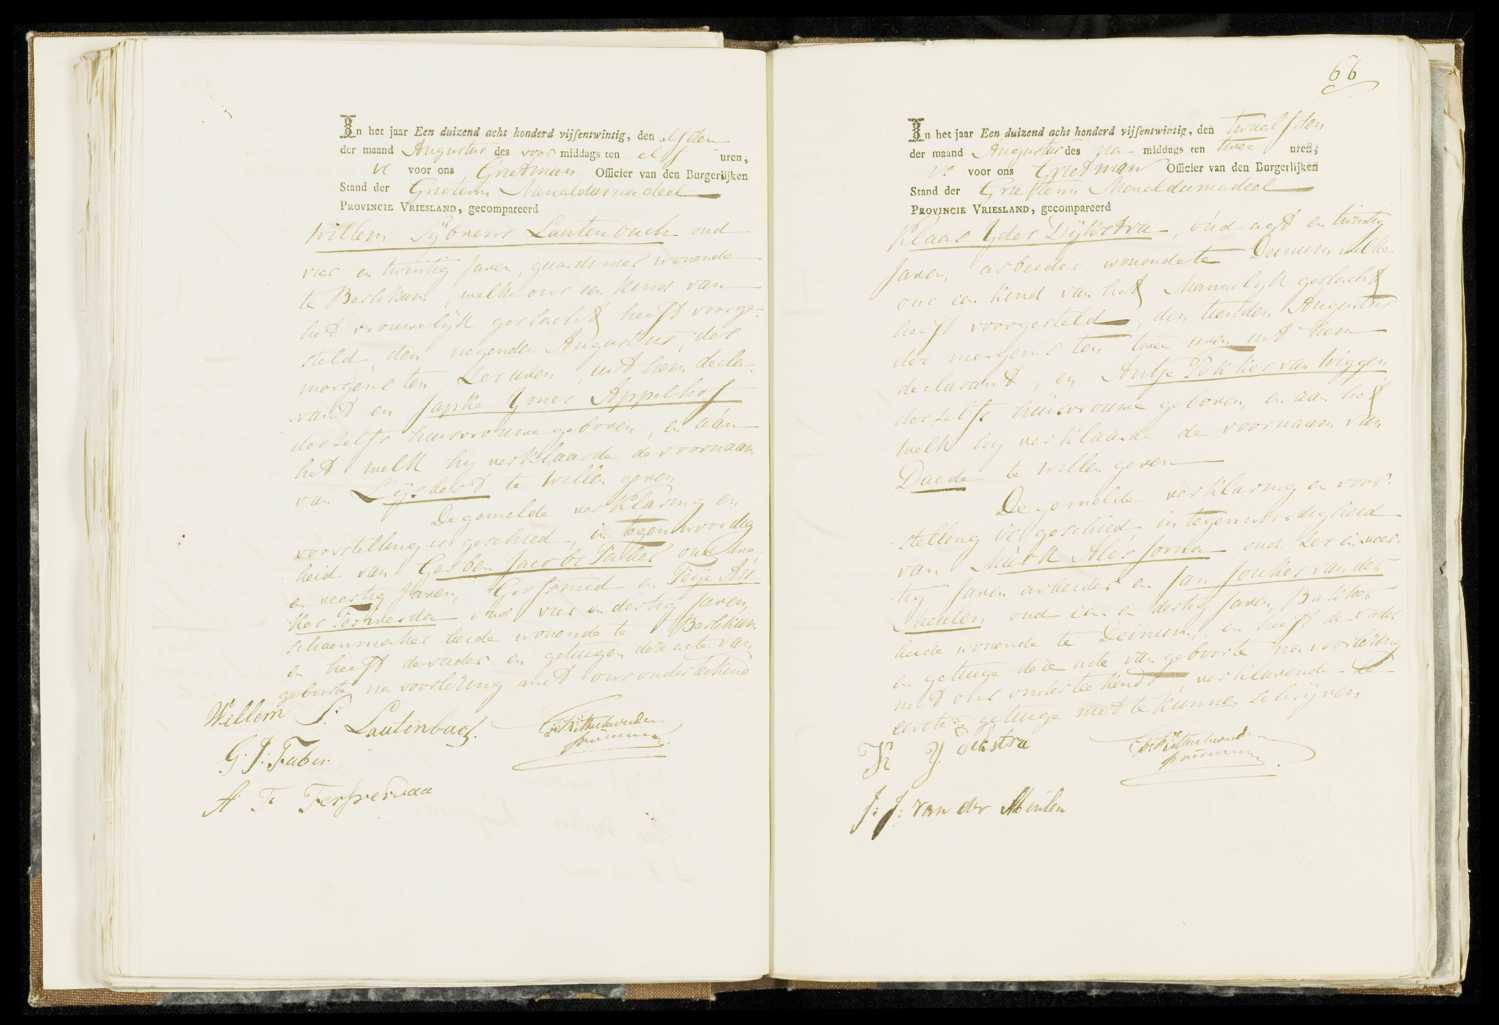 In het jaar Een duizend acht honderd vijfentwintig, den elfden
der maand Augustus des voor middags ten elf uren,
is voor ons Grietman Officier van den Burgerlijken
Stand der Grietenij Menaldumadeel
PROVINCIE VRIESLAND, gecompareerd
Willem Sijbrens Lautenbach oud
vier en twintig Jaren, wonende
te Berlikum, welke ons een kind van
het vrouwelijk geslacht heeft voorge-
steld, den negenden Augustus, des
morgens ten uren, uit hem decla-
rant en Japke Ymes Appelhof
deszelfs huisvrouwe geboren, en aan
het welk hij verklaarde de voornaam
van Lijsbeth te willen geven
De gemelde verklaring en
voorstelling is geschied, in tegenwoordig
heid van Gerben Jacobs Faber oud
en veertig Jaren, Grofsmid en
Terpverda oud vier en dertig Jaren,
schoenmaker beide wonende te Berlikum
en heeft de vader en getuigen deze acte van
geboorte na voorlezing met ons onderteekend
Willem S. Lautenbach.
G. J. Faber
A. F. Terpverdaa
66
In het jaar Een duizend acht honderd vijfentwintig, den twaalfden
der maand Augustus des na middags ten twee uren;
is voor ons Grietman Officier van den Burgerlijken
Stand der Grietenij Menaldumadeel
PROVINCIE VRIESLAND, gecompareerd
Klaas Ydes Dijkstra, oud acht en twintig
Jaren, arbeider wonende te Deinum, welke
ons een kind van het Mannelijk geslacht
heeft voorgesteld, den tienden Augustus
des morgens ten twee uren uit hem
declarant, en Antje Fokkes van Wiggen
deszelfs huisvrouwe geboren, en aan het
welk hij verklaarde de voornaam van
Doede te willen geven
De gemelde verklaring en voor-
stelling is geschied in tegenwoordigheid
van Murk Ales Jorna oud zes en veer-
tig Jaren arbeider en Jan Joukes van der
Meulen oud een en dertig Jaren, Bakker
beide wonende te Deinum, en heeft de vader
en getuige deze acte van geboorte na voorlezing
met ons onderteekend verklarende de
eerste getuige niet te kunnen schrijven
K Y Dikstra
J: J: van der Meulen